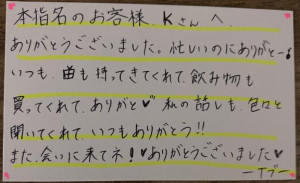 本指名のお客様、Kさんへ、
ありがとうございました。忙しいのにありがとー♪
いつも、曲も持ってきてくれて、飲み物も
買ってくれて、ありがと♥ 私の話しも、色々と
聞いてくれて、いつもありがとう!!
また、会いに来てネ!♥ありがとうございました♥